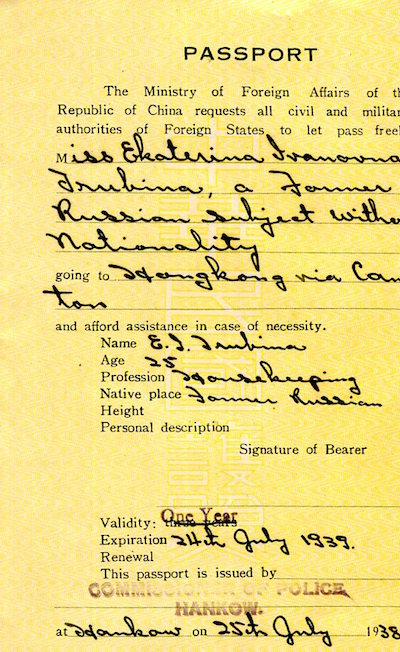 PASSPORT
The Ministry of Foreign Affairs of th
Republic of China requests all civil and militar
authorities of Foreign States to let pass freel
Miss Ekaterina Ivanovna
Trubina, a Former
Russian subject witho
Nationality
going to Hongkong via Can
ton
and afford assistance in case of necessity.
Name E.I. Trubina
Age 25
Profession Housekeeping
Native place Former Russian
Height
Personal description
Signature of Bearer
One Year
Validity: three years
Expiration 24th July 1939.
Renewal
This passport is issued by
COMMISSIONER OF POLICE,
HANKOW.
at Hankow on 25th July 1938